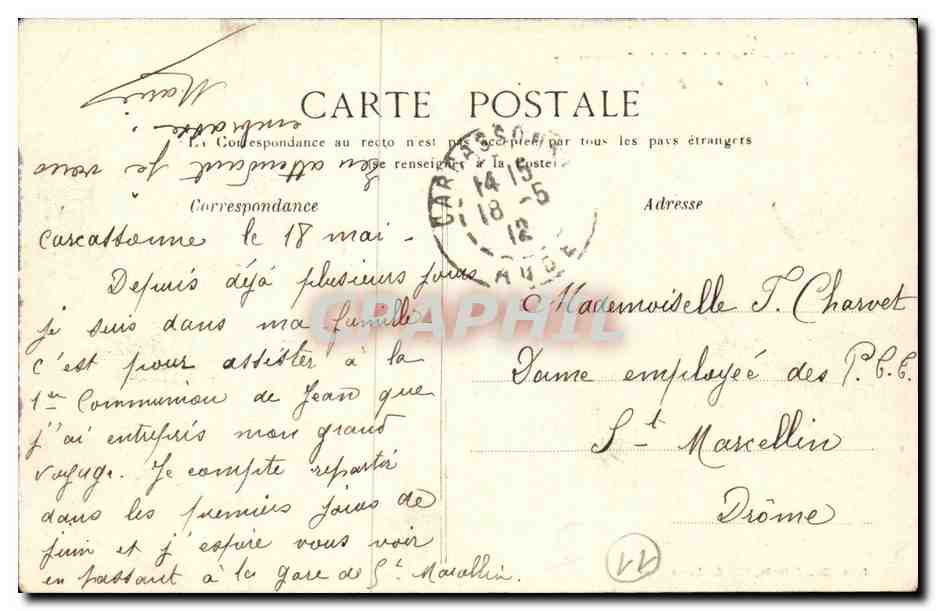 CARTE POSTALE
La Correspondance au recto n'est pas acceptée par tous les pays étrangers
se renseigner à la Poste
Correspondance
Adresse
CARCASSONNE
14 15
18 -5
12
AUDE
Carcassonne le 18 mai -
Depuis déjà plusieurs jours
je suis dans ma famille
c'est pour assister à la
1er Communion de Jean que
j'ai entrepris mon grand
voyage. Je compte repartir
dans les premiers jours de
juin et j'espère vous voir
en passant à la gare de St Marcellin.
En attendant je vous
embrasse.
Marie
Mademoiselle J. Charvet
Dame employée des P.T.T.
St Marcellin
Drôme
11
CPAPHIL